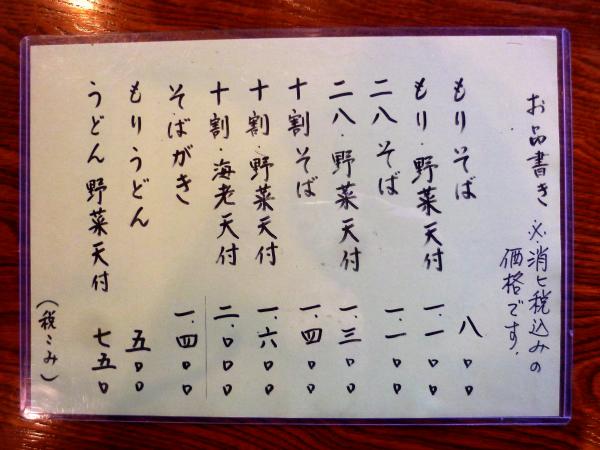 お品書き ※消ヒ税込みの
価格です.
もりそば 八〇〇
もり・野菜天付 一.一〇〇
二八そば 一.一〇〇
二八・野菜天付 一.三〇〇
十割そば 一.四〇〇
十割・野菜天付 一.六〇〇
十割・海老天付 二.〇〇〇
そばがき 一.四〇〇
もりうどん 五〇〇
うどん野菜天付 七五〇
(税こみ)